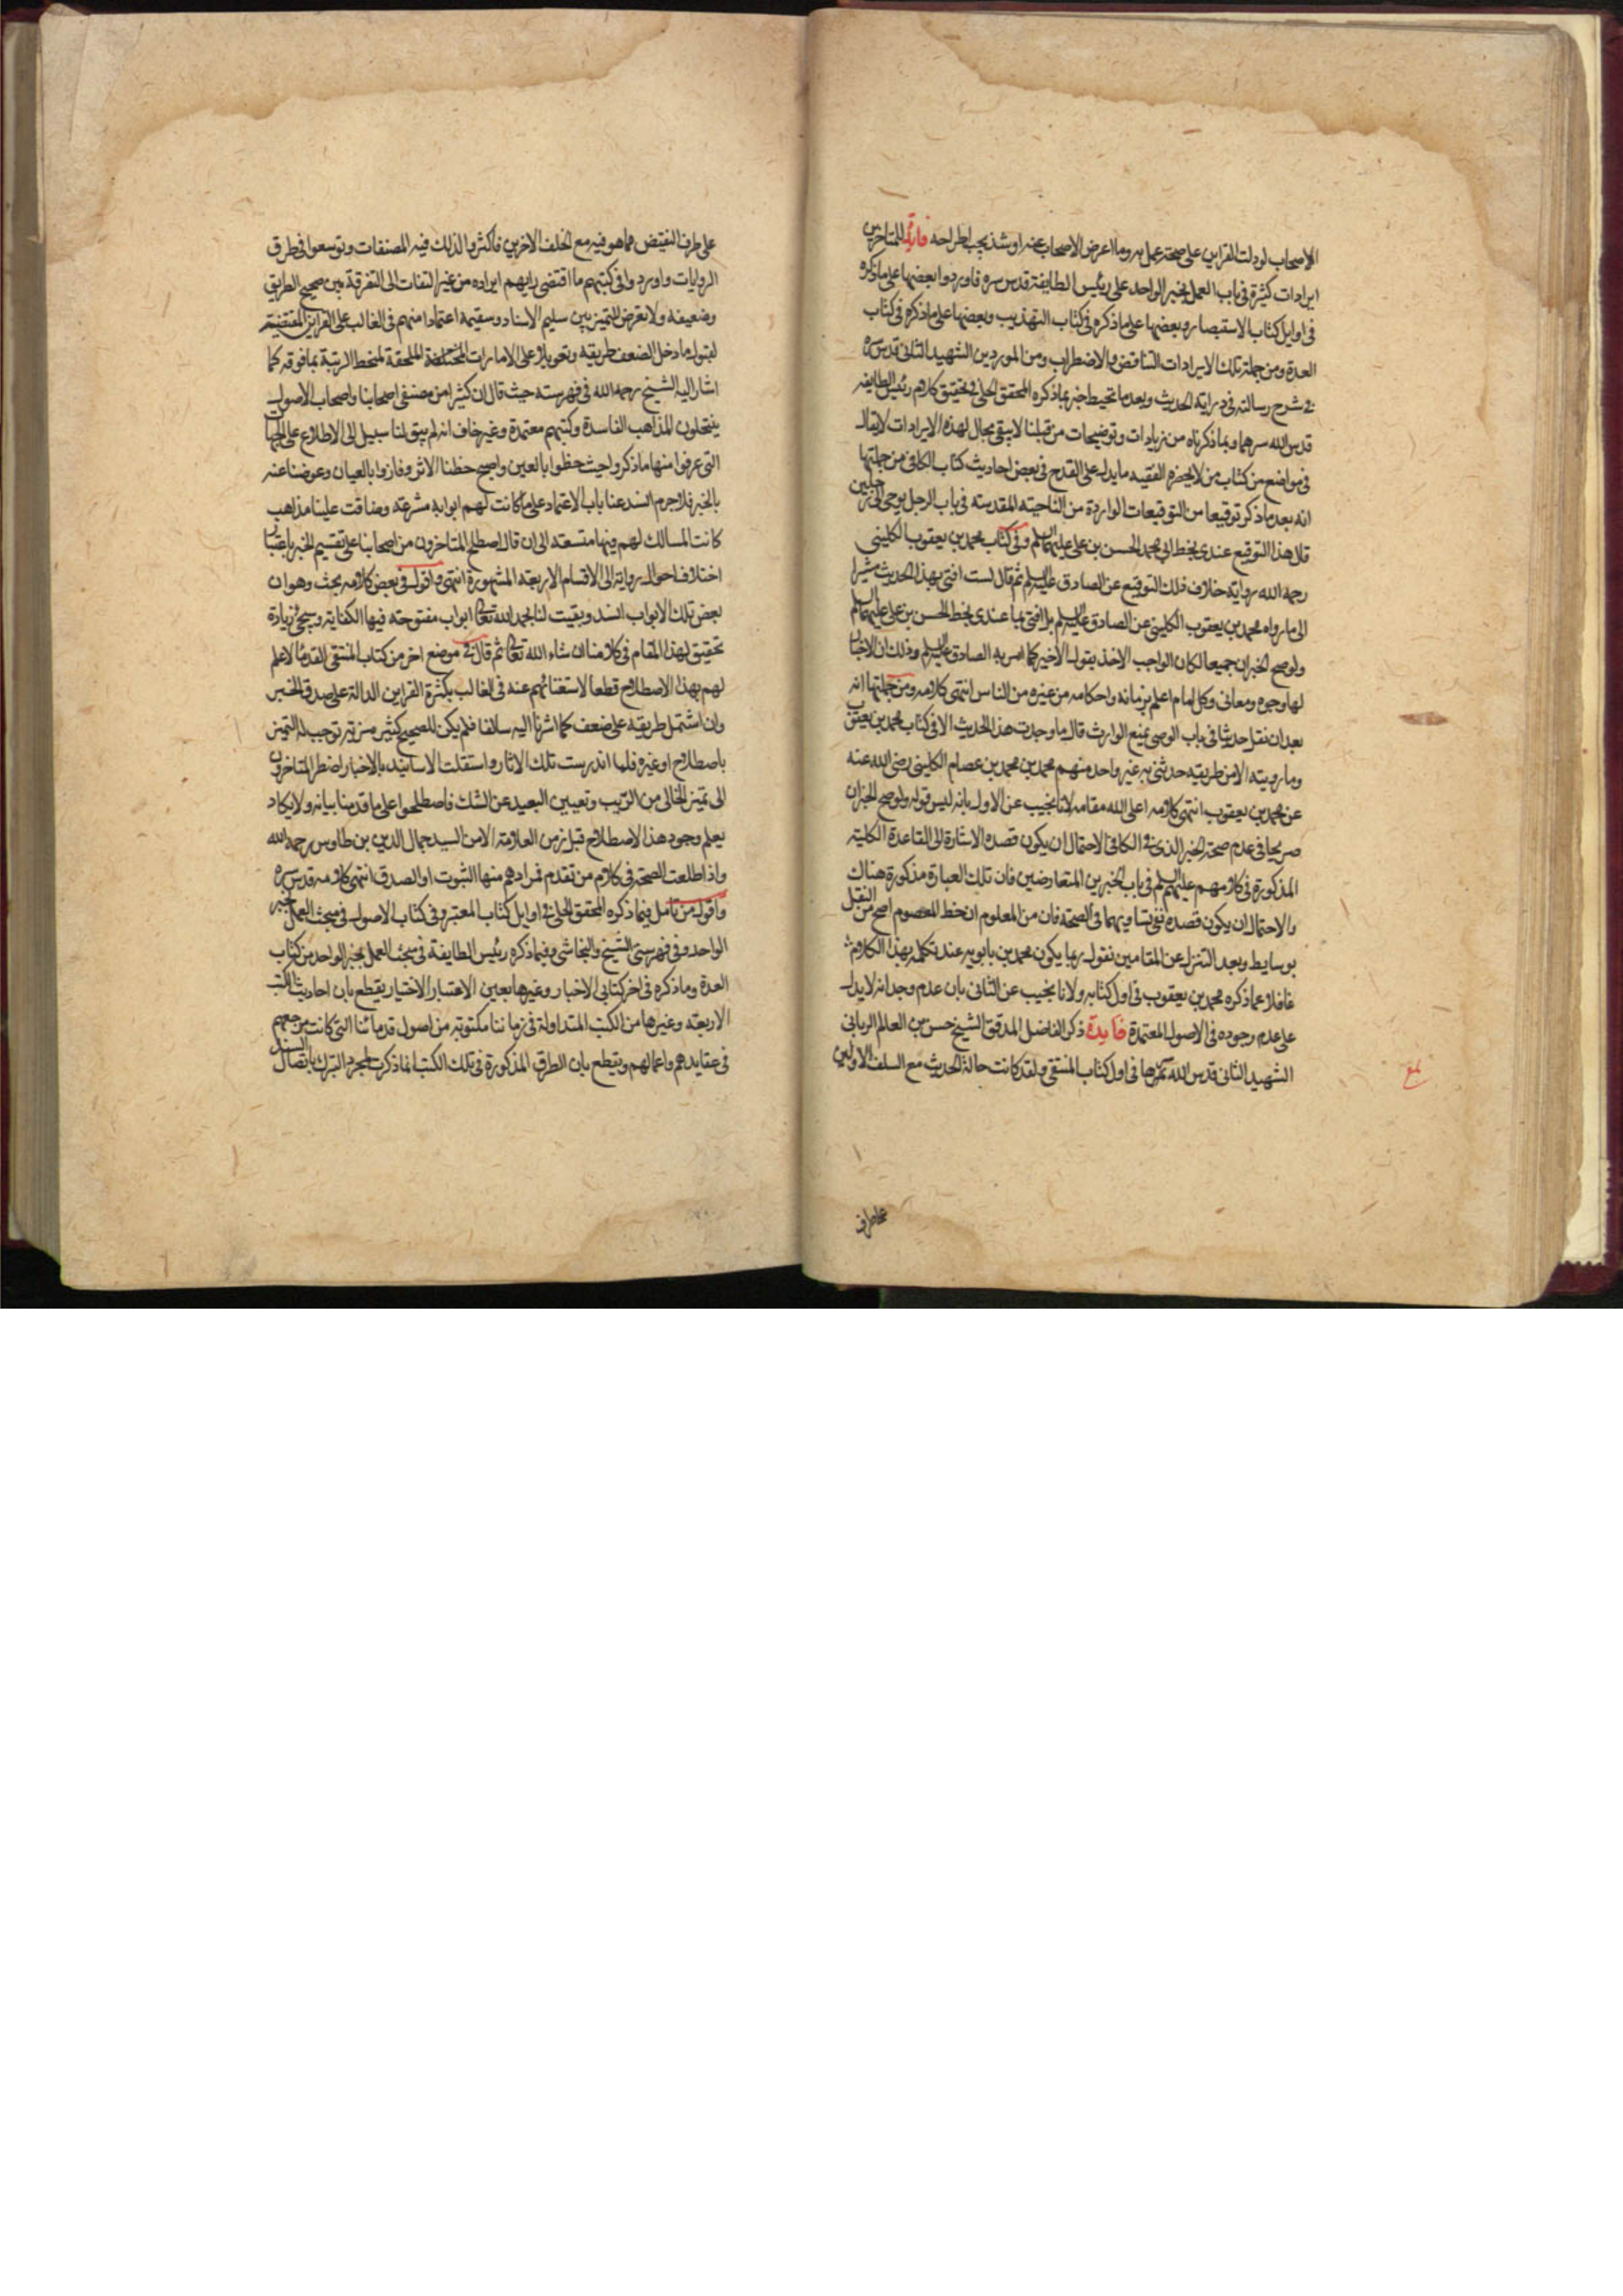 الاصحاب او دلت القراين على صحته عمل به وما اعرض الاصحاب عنه او شذ يجب اطراحه فايدة للمتاخرين
ايرادات كثيرة في باب العمل بخبر الواحد على رئيس الطايفة قدس سره فاوردوا بعضها على ما ذكره
في اوايل كتاب الاستبصار وبعضها على ما ذكره في كتاب التهذيب وبعضها على ما ذكره في كتاب
العدة ومن جملة تلك الايرادات التناقض والاضطراب ومن الموردين الشهيد الثاني قدس سره
في شرح رسالته في دراية الحديث وبعد ما تحيط خبرا بما ذكره المحقق الحلي في تحقيق كلام رئيس الطايفه
قدس الله سرهما وبما ذكرناه من زيادات وتوضيحات من قبلنا لا يبقى مجال لهذه الايرادات لا يقال
في مواضع من كتاب من لا يحضره الفقيه ما يدل على القدح في بعض احاديث كتاب الكافي من جملتها
انه بعد ما ذكر توقيعا من التوقيعات الواردة من الناحية المقدسه في باب الرجل يوصي الى رجلين
قال هذا التوقيع عندي بخط ابي محمد الحسن بن علي عليهما السلم وفي كتاب محمد بن يعقوب الكليني
رحمه الله رواية خلاف ذلك التوقيع عن الصادق عليه السلم ثم قال لست افتي بهذا الحديث مشيرا
الى ما رواه محمد بن يعقوب الكليني عن الصادق عليه السلم بل افتي بما عندي بخط الحسن بن علي عليهما السلم
ولو صح الخبران جميعا لكان الواجب الاخذ بقول الاخير كما امر به الصادق عليه السلم وذلك ان الاخبار
لها وجوه ومعاني وكل امام اعلم بزمانه واحكامه من غيره من الناس انتهى كلامه ومن جملتها انه
بعد ان نقل حديثا في باب الوصي يمنع الوارث قال ما وجدت هذا الحديث الا في كتاب محمد بن يعقوب
وما رويته الا من طريقه حدثني به غير واحد منهم محمد بن محمد بن عصام الكليني رضي الله عنه
عن محمد بن يعقوب انتهى كلامه اعلى الله مقامه لانا نجيب عن الاول بانه ليس قوله ولو صح الخبران
صريحا في عدم صحة الخبر الذي في الكافي لاحتمال ان يكون قصده الاشارة الى القاعدة الكلية
المذكورة في كلامهم عليهم السلم في باب الخبرين المتعارضين فان تلك العبارة مذكورة هناك
والاحتمال ان يكون قصده نفي تساويهما في الصحة فان من المعلوم ان خط المعصوم اصح من النقل
بوسايط وبعد التنزل عن المقامين نقول ربما يكون محمد بن بابويه عند تكلمه بهذا الكلام
غافلا عما ذكره محمد بن يعقوب في اول كتابه ولانا نجيب عن الثاني بان عدم وجدانه لا يدل
على عدم وجوده في الاصول المعتمدة فايدة ذكر الفاضل المدقق الشيخ حسن بن العالم الرباني
الشهيد الثاني قدس الله سرهما في اول كتاب المنتقى ولقد كانت حالة الحديث مع السلف الاولين
على طرف
على طرف النقيض مما هو فيه مع الخلف الاخرين فاكثروا لذلك فيه المصنفات وتوسعوا في طرق
الروايات واوردوا في كتبهم ما اقتضى رايهم ايراده من غير التفات الى التفرقة بين صحيح الطريق
وضعيفه ولا تعرض للتميز بين سليم الاسناد وسقيمه اعتمادا منهم في الغالب على القراين المقتضية
لقبول ما دخل الضعف طريقه وتعويلا على الامارات الملحقة لمنحط الرتبة بما فوقه كما
اشار اليه الشيخ رحمه الله في فهرسته حيث قال ان كثيرا من مصنفي اصحابنا واصحاب الاصول
ينتحلون المذاهب الفاسدة وكتبهم معتمدة وغير خاف انه لم يبق لنا سبيل الى الاطلاع على الجهات
التي عرفوا منها ما ذكروا حيث حظوا بالعين واصبح حظنا الاثر وفازوا بالعيان وعوضنا عنه
بالخبر فلا جرم انسد عنا باب الاعتماد على ما كانت لهم ابوابه مشرعة وضاقت علينا مذاهب
كانت المسالك لهم فيها متسعه الى ان قال اصطلح المتاخرون من اصحابنا على تقسيم الخبر باعتبار
اختلاف احوال رواته الى الاقسام الاربعة المشهورة انتهى واقول في بعض كلامه بحث وهو ان
بعض تلك الابواب انسد وبقيت لنا بحمد الله تعالى ابواب مفتوحة فيها الكفاية وسيجئ زيادة
تحقيق لهذا المقام في كلامنا ان شاء الله تعالى ثم قال في موضع اخر من كتاب المنتقى القدما لا علم
لهم بهذا الاصطلاح قطعا لاستغنائهم عنه في الغالب بكثرة القراين الدالة على صدق الخبر
وان اشتمل طريقه على ضعف كما اشرنا اليه سالفا فلم يكن للصحيح كثير مزية توجب له التميز
باصطلاح او غيره فلما اندرست تلك الاثار واستقلت الاسانيد بالاخبار اضطر المتاخرون
الى تميز الخالي من الريب وتعيين البعيد عن الشك فاصطلحوا على ما قدمنا بيانه ولا يكاد
يعلم وجود هذا الاصطلاح قبل زمن العلامة الا من السيد جمال الدين بن طاوس رحمه الله
واذا طلعت الصحة في كلام من تقدم فمرادهم منها الثبوت او الصدق انتهى كلامه قدس سره
واقول من تامل فيما ذكره المحقق الحلي في اوايل كتاب المعتبر وفي كتاب الاصول في مبحث العمل بخبر
الواحد وفي فهرستي الشيخ والنجاشي وفيما ذكره رئيس الطايفة في مبحث العمل بخبر الواحد من كتاب
العدة وما ذكره في اخر كتابي الاخبار وغيرها بعين الاعتبار الاختيار يقطع بان احاديث الكتب
الاربعة وغيرها من الكتب المتداولة في زماننا مكتوبة من اصول قدمائنا التي كانت مرجعهم
في عقايدهم واعمالهم ويقطع بان الطرق المذكورة في تلك الكتب انما ذكرت لمجرد التبرك باتصال السند